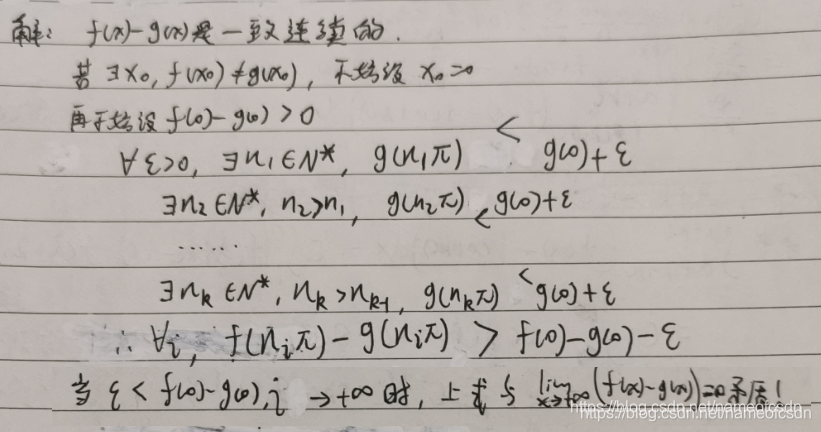 解: f(x)-g(x)是一致连续的.
若∃x₀, f(x₀)≠g(x₀), 不妨设 x₀=0
再不妨设 f(0)-g(0)>0
∀ε>0, ∃n₁∈N*, g(n₁π) < g(0)+ε
∃n₂∈N*, n₂>n₁, g(n₂π) < g(0)+ε
......
∃nₖ∈N*, nₖ>nₖ₋₁, g(nₖπ) < g(0)+ε
∴ ∀i, f(nᵢπ)-g(nᵢπ) > f(0)-g(0)-ε
当 ε<f(0)-g(0), i→+∞时, 上式与 lim x→+∞ (f(x)-g(x))=0矛盾!
https://blog.csdn.net/nameofcsdn